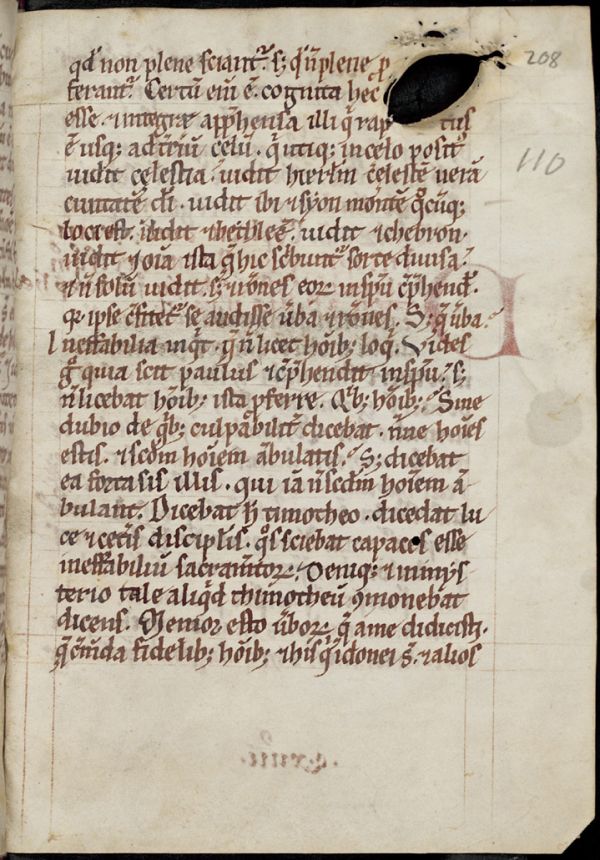 208
110
qd̄ non plene sciant᷑. s; q̄ n̄ plene p
ferant᷑. Certū eni ē. cognita hec
esse. ⁊ integre app̄hensa illi q̄ rap tus
ē usq; ad t̄ciū celū. q̄ utiq; in celo posit᷑
uidit celestia. uidit hierl̄m celestē uerā
ciuitatē dī. uidit ibi ⁊ syon montē q̊cūq;
loco est. uidit ⁊ bethleē. uidit ⁊ chebron.
uidit ⁊ oīa ista q̄ hic sc̄bunt᷑ sorte diuisa.
⁊ n̄ solū uidit. s; ⁊ rōnes eor᷑ in sp̄u c̄p̄hend̄.
q᷑ ipse c̄fitet᷑ se audisse ūba ⁊ rōnes. S; q̄ ūba.
Ineffabilia inq̇t. q̄ n̄ licet hoīb; loq̇. Vides
g̊ quia scit paulus ⁊ c̄p̄hendit in sp̄u. s;
n̄ licebat hōib; ista p̄ferre. Q̇b; hōib; Sine
dubio de q̇b; culpabilit᷑ dicebat. n̄ne hoīes
estis. ⁊ scdm hoīem ābulatis. S; dicebat
ea fortasis illis. qui iā n̄ scdm hoīem ā
bulant. Dicebat h̄ timotheo. dicebat lu
ce ⁊ cet̄is discipl̄is. q̊s sciebat capaces esse
ineffabiliū sacram̄tor᷑. Deniq; ⁊ minys
terio tale aliq̇d thimotheū ꝯmonebat
dicens. Memor esto ūbor᷑. q̄ a me didicisti.
q̄ c̄m̄da fidelib; hōib; ⁊ his q̇ idonei s̄. ⁊ alios